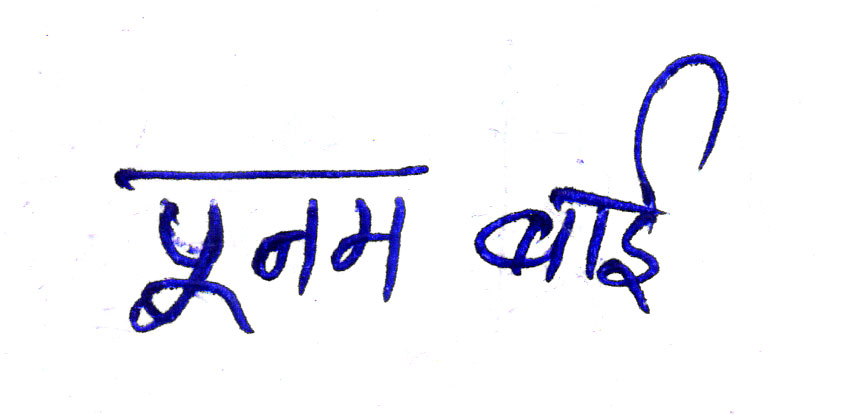 पूनम बाई